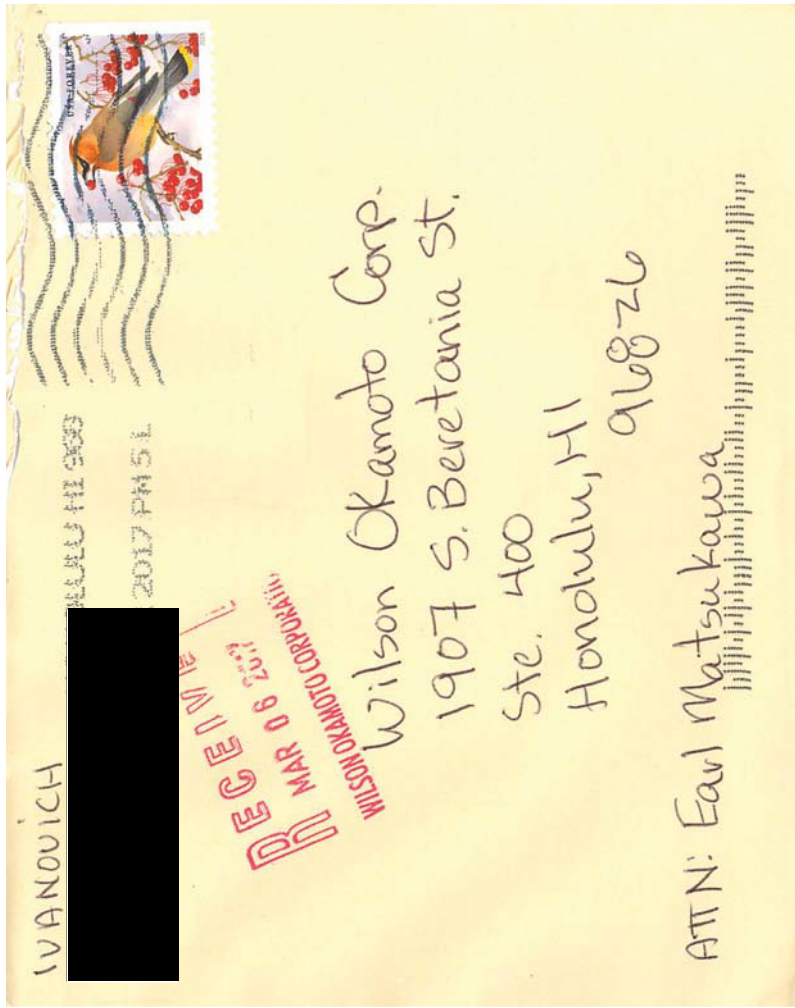 IVANOVICH
HI
2017 PM 5 L
USA FOREVER
RECEIVE
MAR 06 2017
WILSON OKAMOTO CORPORATION
Wilson Okamoto Corp.
1907 S. Beretania St.
Ste. 400
Honolulu, HI
96826
ATTN: Earl Matsukawa